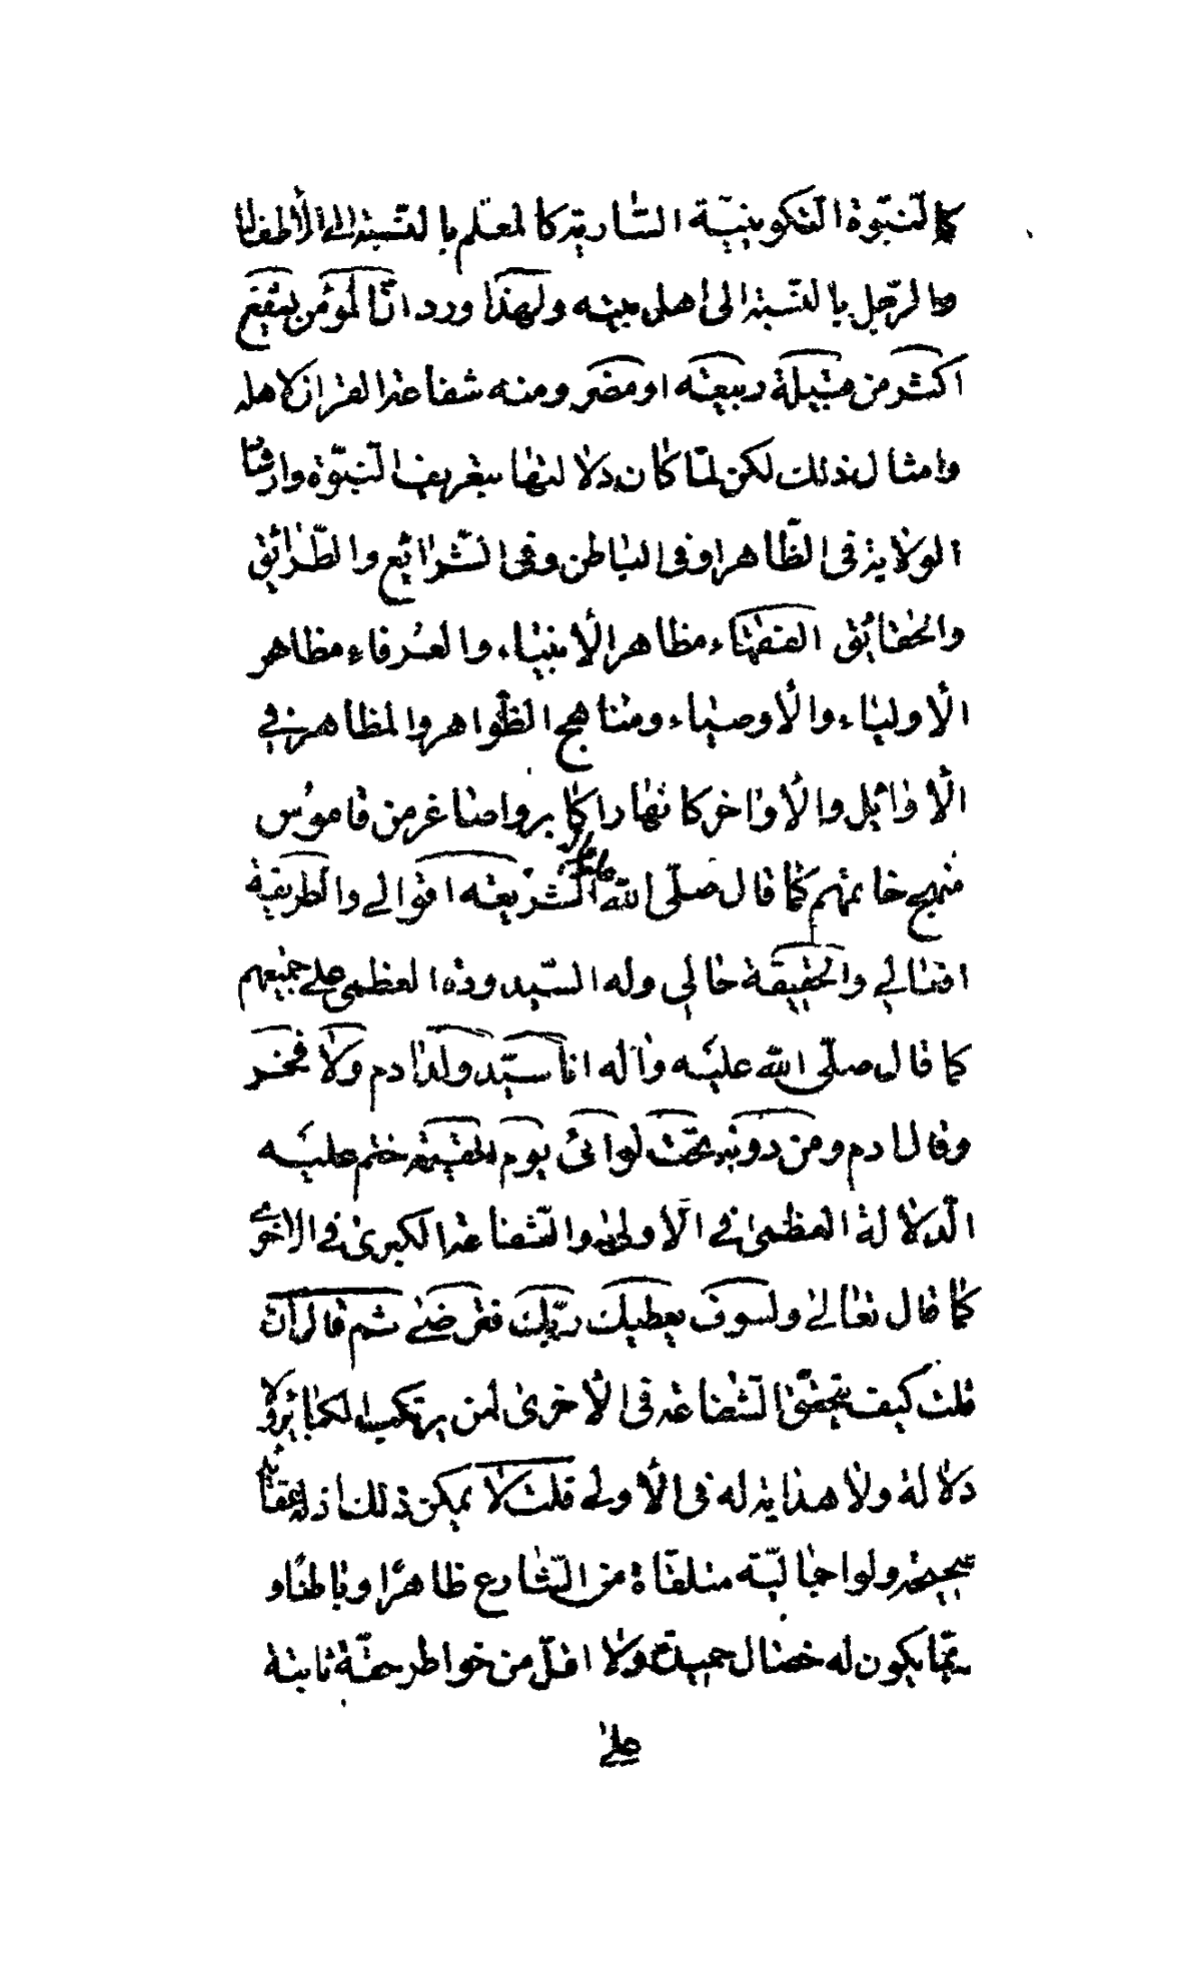 كالنّبوّة التكوينيّة السّارية كالمعلّم بالنّسبة الى الأطفال
والرّجل بالنّسبة الى اهل بيته ولهذا ورد انّ المؤمن يشفع
اكثر من قبيلة ربيعة او مضر ومنه شفاعة القران لاهله
وامثال ذلك لكن لمّا كان دلالتها بتعريف النّبوّة وارشاد
الولاية فى الظّاهر وفى الباطن وفى الشّرائع والطّرائق
والحقائق الفقهاء مظاهر الأنبياء والعرفاء مظاهر
الأولياء والأوصياء ومناهج الظّواهر والمظاهر فى
الأوائل والأواخر كانهار اكابر واصاغر من قاموس
منهج خاتمهم كما قال صلّى اللّه عليه واله الشّريعة اقوالى والطريقة
افعالى والحقيقة حالى وله السّيدودة العظمى على جميعهم
كما قال صلّى اللّه عليه واله انا سيّد ولد ادم ولا فخر
وقال ادم ومن دونه تحت لوائى يوم القيمة ختم عليه
الدّلالة العظمى فى الأولى والشّفاعة الكبرى فى الاخرى
كما قال تعالى ولسوف يعطيك ربّك فترضى ثم قال ان
قلت كيف يتحقّق الشّفاعة فى الأخرى لمن يرتكب الكبائر ولا
دلالة ولا هداية له فى الأولى قلت لا يمكن ذلك اذ له عقايد
صحيحة ولو اجماليّة متلقّاة من الشّارع ظاهرًا وباطنًا و
ربّما يكون له خصال حميدة ولا اقلّ من خواطر حقّة ثابتة
على